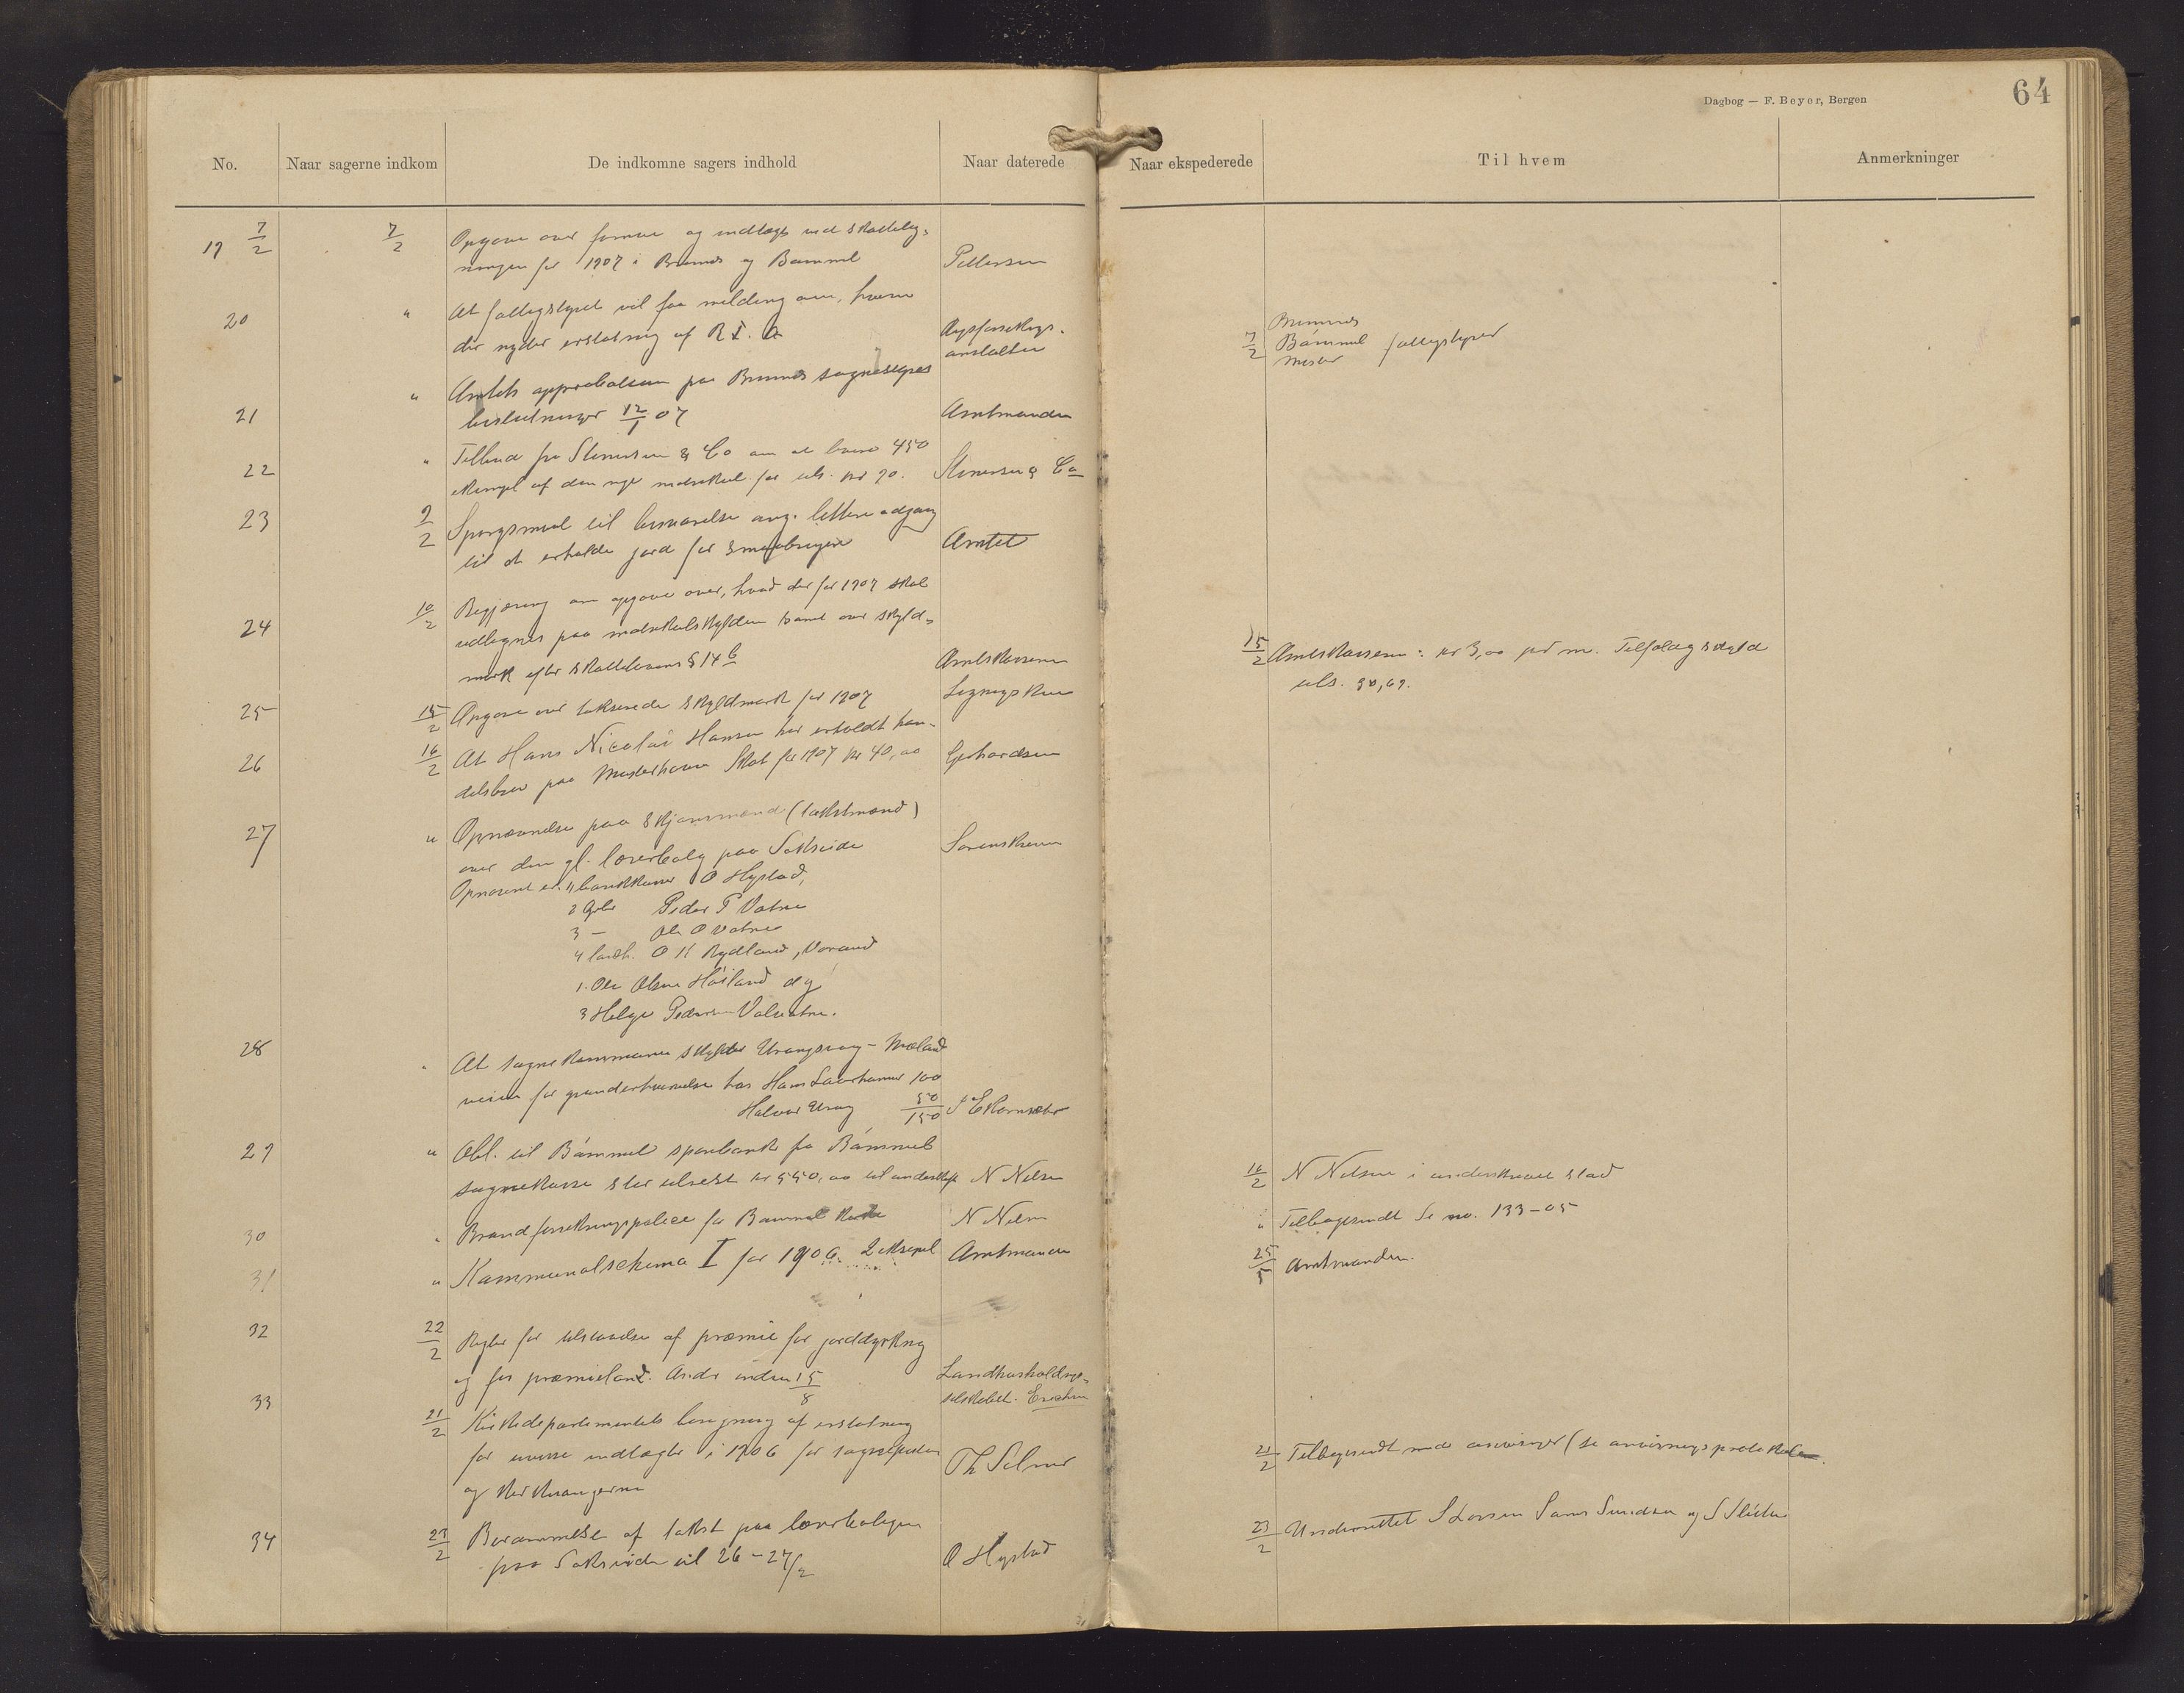 Dagbog — F. Beyer, Bergen
64
No.
Naar sagerne indkom
De indkomne sagers indhold
Naar daterede
Naar ekspederede
Til hvem
Anmerkninger
19 7/2 7/2 Opgave over formue og indtægt ved skattelig-
ningen for 1907 i Bremnes og Bømmel Pettersen
20 " At fattigstyret vil faa melding om, hvem
der nyder erstatning af R. F. A Rigsforsikrings-
anstalten
7/2 Bremnes
Bømmel fattigstyrer
Moster
21 " Amtets approbation paa Bremnes sognestyres
beslutninger 12/1 07 Amtmanden
22 " Tilbud fra Stenersen & Co om at levere 450
eksempl af den nye matrikul for ialt kr 90. Stenersen & Co
23 9/2 Spørgsmaal til besvarelse ang. lettere adgang
til at erholde jord for smaabrugere Amtet
24 10/2 Begjæring om opgave over, hvad der for 1907 skal
udlignes paa matrikulskylden samt over skyld-
mark efter skattelovens § 14 b Amtskassereren
15/2 Amtskassereren: kr 3,00 pr m. Tilfældig skyld
ialt 30,69.
25 15/2 Opgave over takserede skyldmark for 1907 Ligningskom
26 16/2 At Hans Nicolai Hansen har erholdt han-
delsbrev paa Mosterhavn Skat for 1907 kr 40,00 Gerhardsen
27 " Opnævnelse paa skjønsmænd (takstmænd)
over den gl. lærerbolig paa Sakseide Sorenskriveren
Opnævnt er: 1) bankkasser O Hystad,
2 Gbr Peder P Vatne
3 — Ole O Vatne
4 landh. O K Rydland, Vorand
1. Ole Olsen Høiland og
3 Helge Pedersen Valvatne.
28 " At sognekommunen skylder Urangsvaag - Mæland
veien for grunderhvervelse hos Hans Laurhammer 100
Halvor Urang 50
150 S Ekornsæter
29 " Obl. til Bømmel sparebank fra Bømmel
sognekasse stor ialt kr 550,00 til underskr N Nilsen
16/2 N Nilsen i underskrevet stand
30 " Brandforsikringspolice for Bømmel kirke N Nilsen
" Tilbagesendt Se no. 133-05
31 " Kommunalschema I for 1906. 2 eksempl Amtmanden
25/5 Amtmanden.
32 22/2 Regler for tilstaaelse af præmie for jorddyrkning
og for præmieland. Ands inden 15/8 Landhusholdnings-
selskabet. Erichsen
33 21/2 Kirkedepartementets beregning af erstatning
for uvisse indtægter i 1906 for sognepresten
og kirkesangerne Th Selmer
21/2 Tilbagesendt med anvisninger (se anvisningsprotokolen.
34 23/2 Berammelse af takst paa lærerboligen
paa Sakseide til 26-27/2 O Hystad
23/2 Underrettet S Larsen